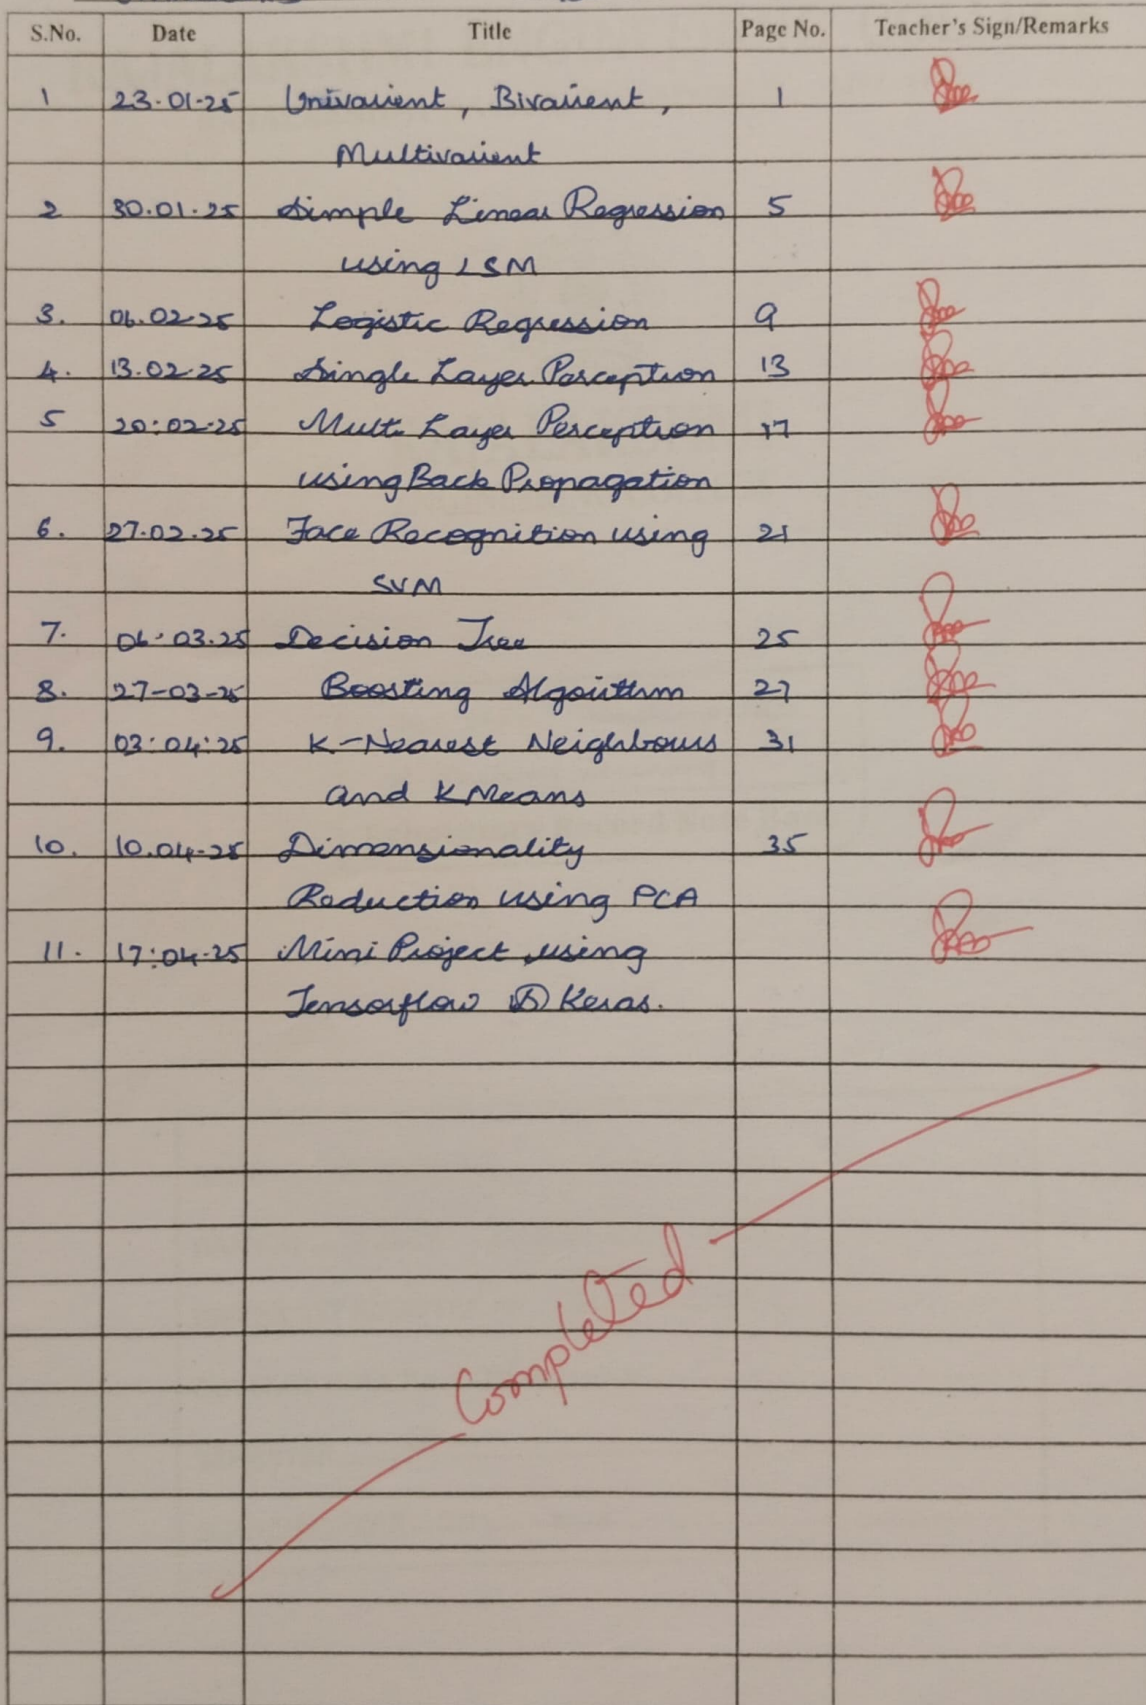 S.No. Date Title Page No. Teacher's Sign/Remarks
1 23-01-25 Univarient, Bivarient, 1
Multivarient
2 30.01.25 Simple Linear Regression 5
using LSM
3. 06.02.25 Logistic Regression 9
4. 13.02.25 Single Layer Perception 13
5 20:02.25 Multi Layer Perception 17
using Back Propagation
6. 27.02.25 Face Recognition using 21
SVM
7. 06.03.25 Decision Tree 25
8. 27-03-25 Boosting Algorithm 27
9. 03:04:25 K-Nearest Neighbours 31
and K Means
10. 10.04-25 Dimensionality 35
Reduction using PCA
11. 17:04.25 Mini Project using
Tensorflow & Keras.
Completed